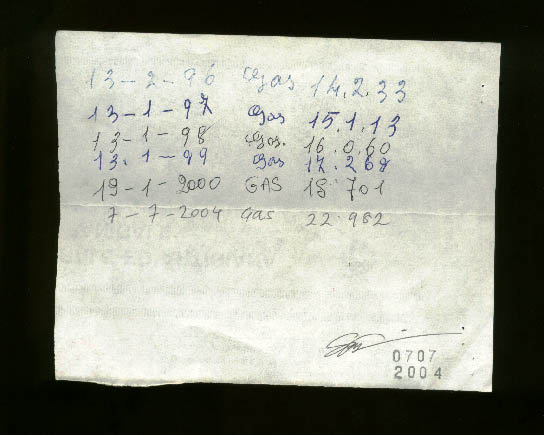 13-2-96 Gas 14.2.33
13-1-97 Gas 15.1.13
13-1-98 Gas. 16.0.60
13.1-99 Gas 17.268
19-1-2000 GAS 18.701
7-7-2004 Gas 22.982
0707
2004